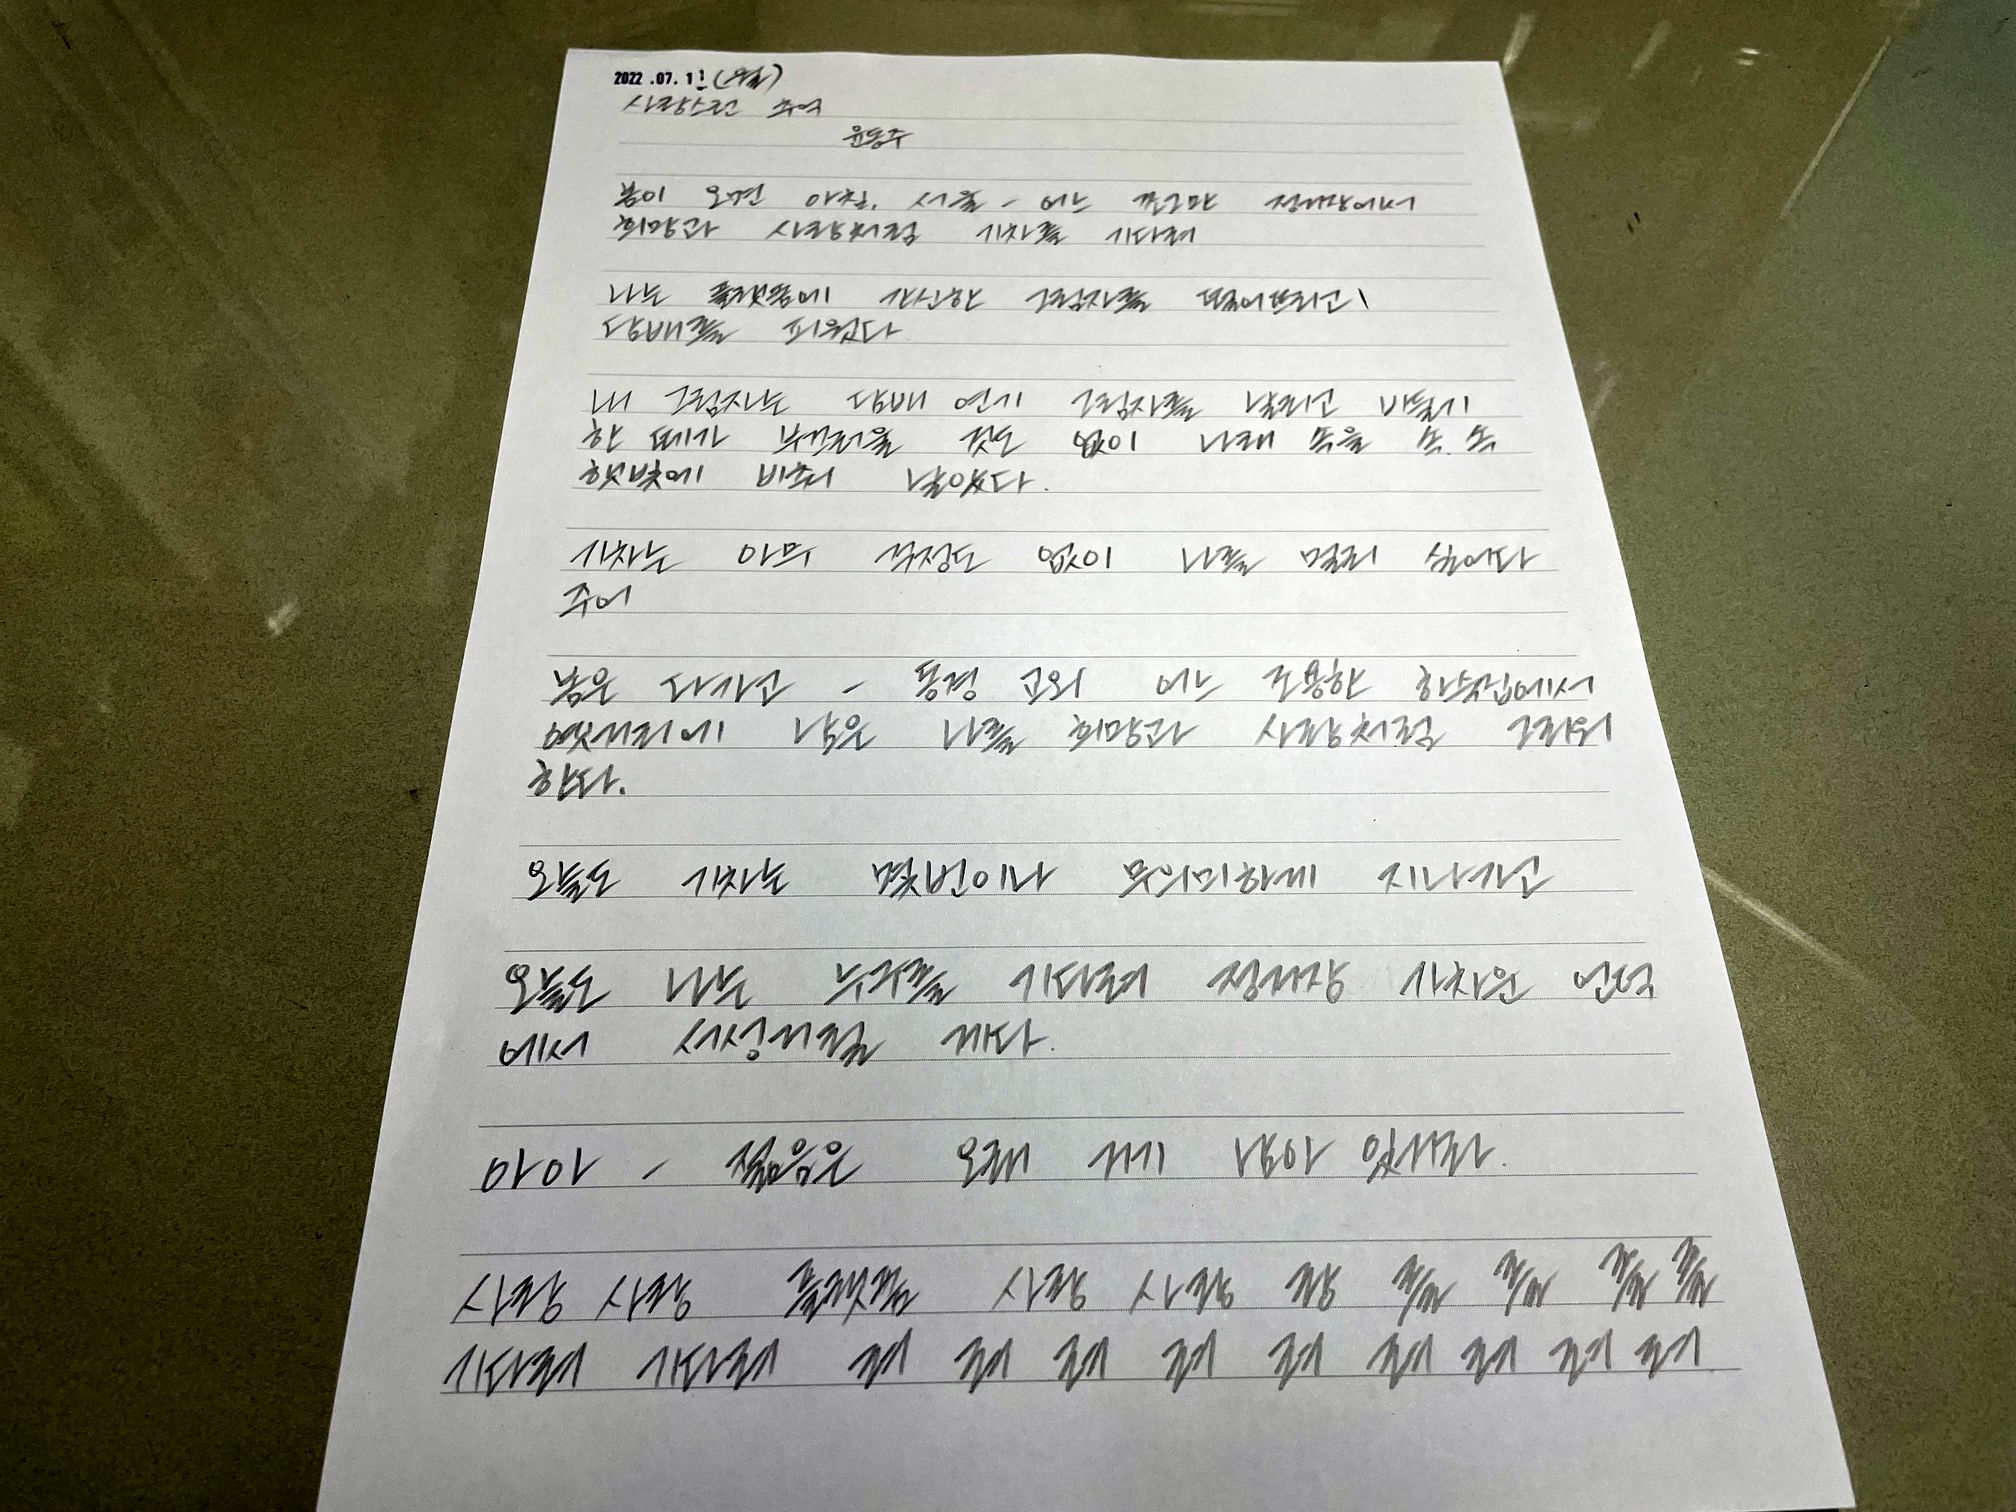 2022.07.11 (월)
사랑스런 추억
윤동주
봄이 오던 아침, 서울 - 어느 쪼그만 정거장에서
희망과 사랑처럼 기차를 기다려
나는 플랫폼에 간신한 그림자를 떨어뜨리고,
담배를 피웠다
내 그림자는 담배 연기 그림자를 날리고 비둘기
한 떼가 부끄러울 것도 없이 나래 속을 속, 속
햇빛에 비춰 날았다.
기차는 아무 새로운 소식도 없이 나를 멀리 실어다
주어
봄은 다 가고 - 동경 교외 어느 조용한 하숙방에서
옛거리에 남은 나를 희망과 사랑처럼 그리워
한다.
오늘도 기차는 몇번이나 무의미하게 지나가고
오늘도 나는 누구를 기다려 정거장 가차운 언덕
에서 서성거릴 게다.
아아 - 젊음은 오래 거기 남아 있거라.
사랑 사랑 플랫폼 사랑 사랑 랑 를 를 를 를
기다려 기다려 려 려 려 려 려 려 려 려 려